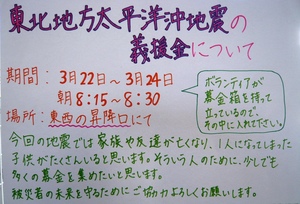 東北地方太平洋沖地震の
義援金について
期間：3月22日〜3月24日
朝8:15〜8:30
場所：東西の昇降口にて
ボランティアが
募金箱を持って
立っているので、
その中に入れて下さい。
今回の地震では家族や友達が亡くなり、1人になってしまった
子供がたくさんいると思います。そういう人のために、少しでも
多くの募金を集めたいと思います。
被災者の未来を守るためにご協力よろしくお願いします。